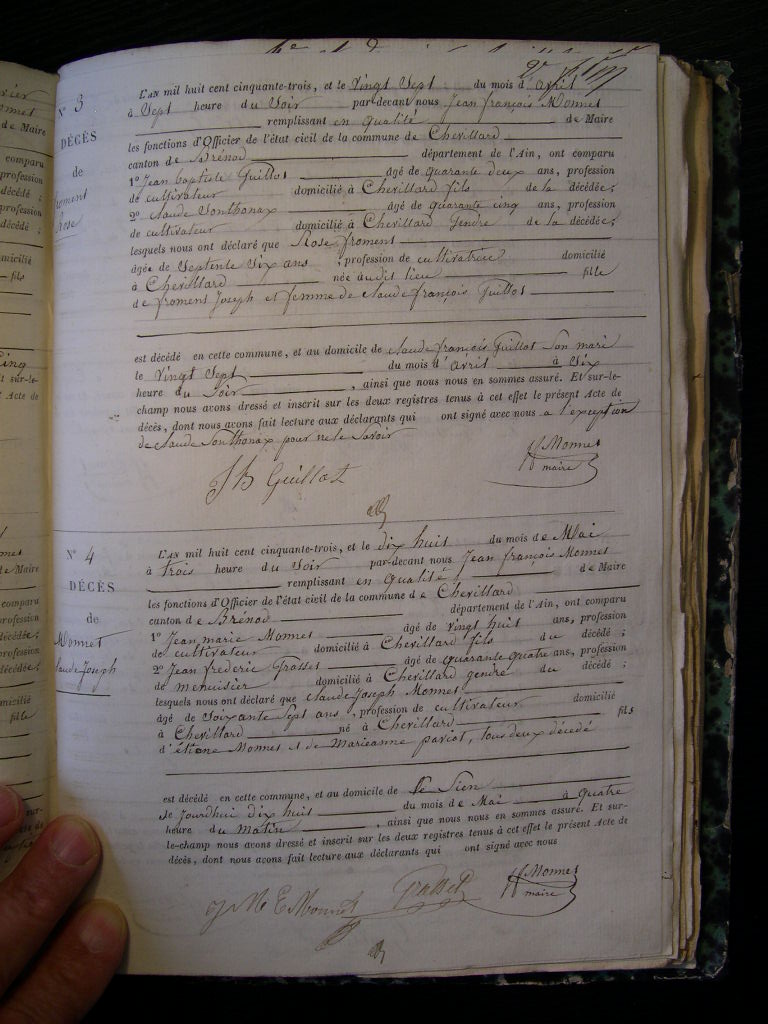 N° 3
DÉCÈS
de
froment
Rose
L'AN mil huit cent cinquante-trois, et le Vingt Sept du mois d'avril
à Sept heure du Soir par-devant nous Jean françois Monnet
remplissant en qualité de Maire
les fonctions d'Officier de l'état civil de la commune de Chevillard
canton de Brénod département de l'Ain, ont comparu
1° Jean baptiste Guillot âgé de quarante deux ans, profession
de cultivateur domicilié à Chevillard fils de la décédée;
2° claude Sonthonax âgé de quarante cinq ans, profession
de cultivateur domicilié à Chevillard gendre de la décédée;
lesquels nous ont déclaré que Rose froment
âgée de Septente Six ans, profession de cultivatrice domicilié
à Chevillard née audit lieu fille
de froment Joseph et femme de claude françois Guillot
est décédé en cette commune, et au domicile de claude françois Guillot Son mari
le Vingt Sept du mois d'avril à Six
heure du Soir, ainsi que nous nous en sommes assuré. Et sur-le-
champ nous avons dressé et inscrit sur les deux registres tenus à cet effet le présent Acte de
décès, dont nous avons fait lecture aux déclarants qui ont signé avec nous a l'exception
de claude Sonthonax pour ne le Savoir
Monnet
maire
Jh Guillot
N° 4
DÉCÈS
de
Monnet
claude Joseph
L'AN mil huit cent cinquante-trois, et le dix huit du mois de Mai
à trois heure du Soir par-devant nous Jean françois Monnet
remplissant en qualité de Maire
les fonctions d'Officier de l'état civil de la commune de Chevillard
canton de Brénod département de l'Ain, ont comparu
1° Jean marie Monnet âgé de vingt huit ans, profession
de cultivateur domicilié à Chevillard fils du décédé;
2° Jean frederic Grasset âgé de quarante quatre ans, profession
de menuisier domicilié à Chevillard gendre du décédé;
lesquels nous ont déclaré que claude Joseph Monnet
âgé de Soixante Sept ans, profession de cultivateur domicilié
à Chevillard né à Chevillard fils
d'étiene Monnet et de Marieanne pariot, tous deux décédé
est décédé en cette commune, et au domicile de le Sien
le Jourdhui dix huit du mois de Mai à quatre
heure du matin, ainsi que nous nous en sommes assuré. Et sur-
le-champ nous avons dressé et inscrit sur les deux registres tenus à cet effet le présent Acte de
décès, dont nous avons fait lecture aux déclarants qui ont signé avec nous
Monnet
maire
J M E Monnet Grasset